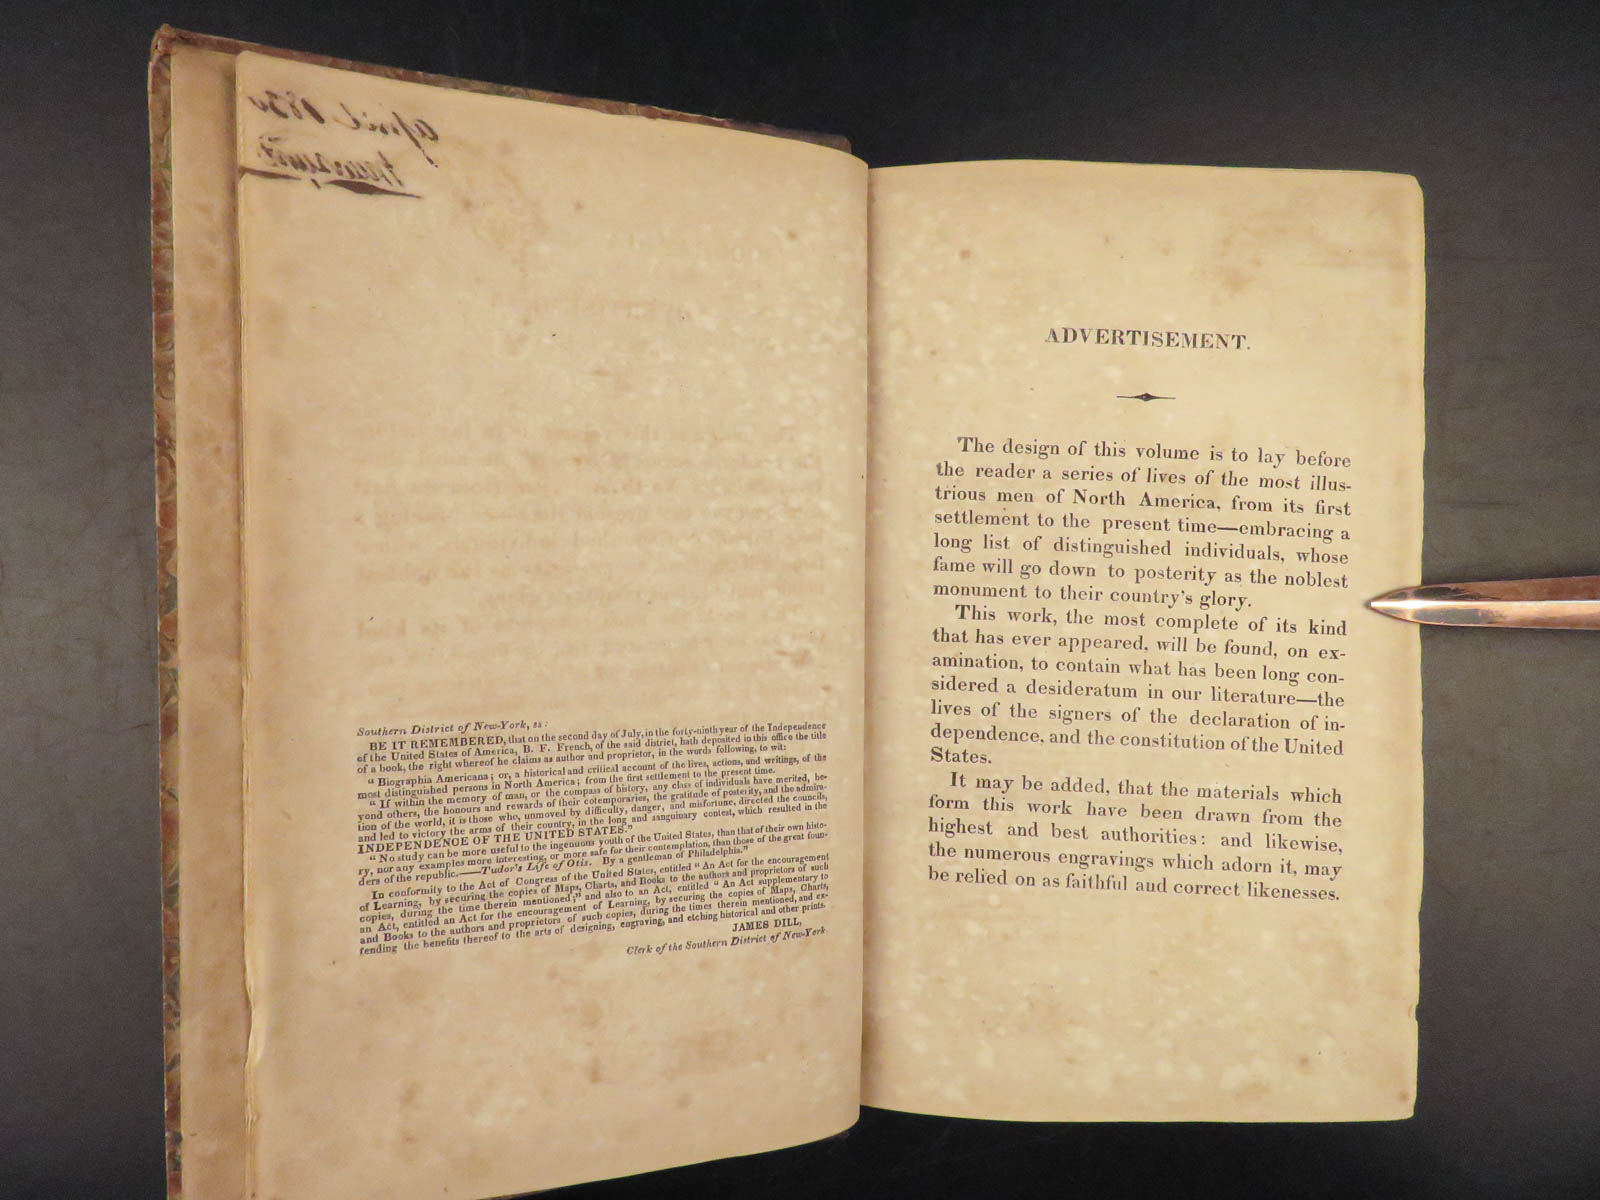 april 1830
Southern District of New-York, ss:
BE IT REMEMBERED, that on the second day of July, in the forty-ninth year of the Independence
of the United States of America, B. F. French, of the said district, hath deposited in this office the title
of a book, the right whereof he claims as author and proprietor, in the words following, to wit:
“ Biographia Americana; or, a historical and critical account of the lives, actions, and writings, of the
most distinguished persons in North America; from the first settlement to the present time.
“ If within the memory of man, or the compass of history, any class of individuals have merited, be-
yond others, the honours and rewards of their cotemporaries, the gratitude of posterity, and the admira-
tion of the world, it is those who, unmoved by difficulty, danger, and misfortune, directed the councils,
and led to victory the arms of their country, in the long and sanguinary contest, which resulted in the
INDEPENDENCE OF THE UNITED STATES.”
“ No study can be more useful to the ingenuous youth of the United States, than that of their own histo-
ry, nor any examples more interesting, or more safe for their contemplation, than those of the great foun-
ders of the republic.——Tudor's Life of Otis. By a gentleman of Philadelphia.”
In conformity to the Act of Congress of the United States, entitled “ An Act for the encouragement
of Learning, by securing the copies of Maps, Charts, and Books to the authors and proprietors of such
copies, during the time therein mentioned;” and also to an Act, entitled “ An Act supplementary to
an Act, entitled an Act for the encouragement of Learning, by securing the copies of Maps, Charts,
and Books to the authors and proprietors of such copies, during the times therein mentioned, and ex-
tending the benefits thereof to the arts of designing, engraving, and etching historical and other prints.
JAMES DILL,
Clerk of the Southern District of New-York
ADVERTISEMENT.
The design of this volume is to lay before
the reader a series of lives of the most illus-
trious men of North America, from its first
settlement to the present time—embracing a
long list of distinguished individuals, whose
fame will go down to posterity as the noblest
monument to their country's glory.
This work, the most complete of its kind
that has ever appeared, will be found, on ex-
amination, to contain what has been long con-
sidered a desideratum in our literature—the
lives of the signers of the declaration of in-
dependence, and the constitution of the United
States.
It may be added, that the materials which
form this work have been drawn from the
highest and best authorities: and likewise,
the numerous engravings which adorn it, may
be relied on as faithful and correct likenesses.